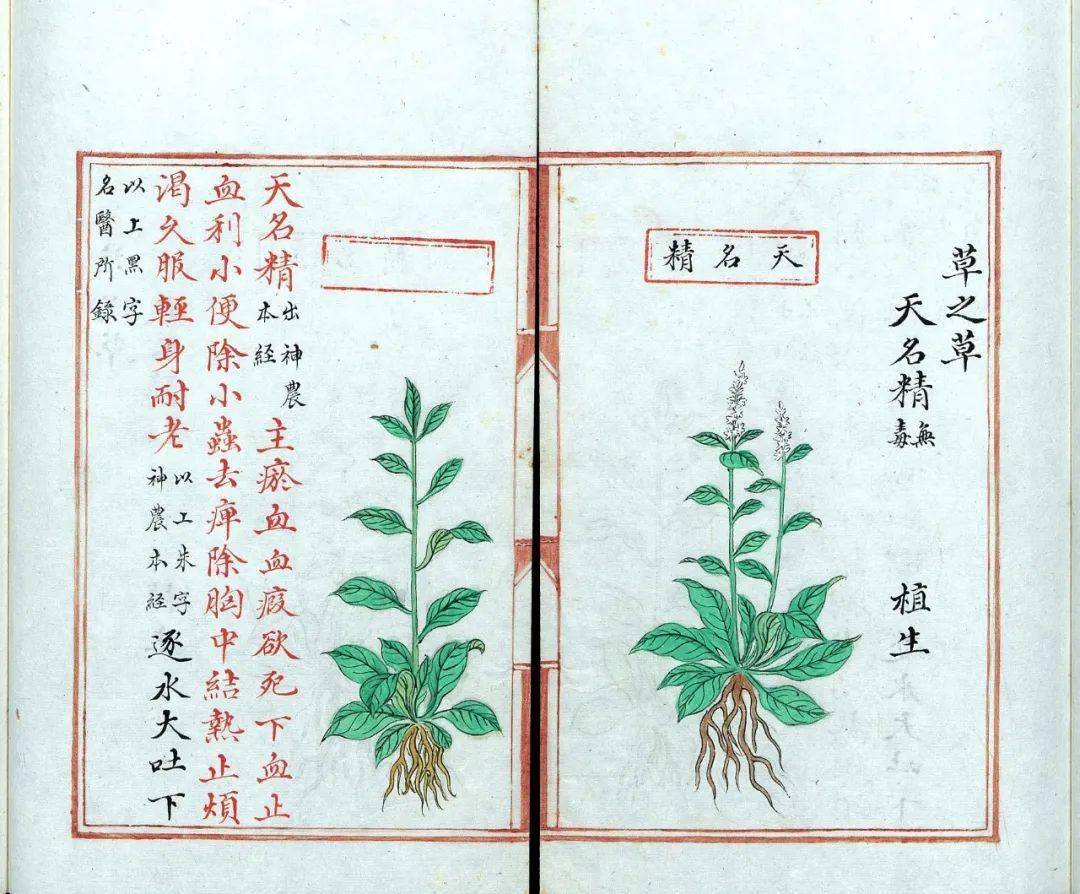 草之草
天名精無毒 植生
天名精
天名精出神農本経主瘀血血瘕欲死下血止
血利小便除小蟲去痺除胸中結熱止煩
渴久服輕身耐老以上朱字神農本経逐水大吐下
以上黑字名醫所錄